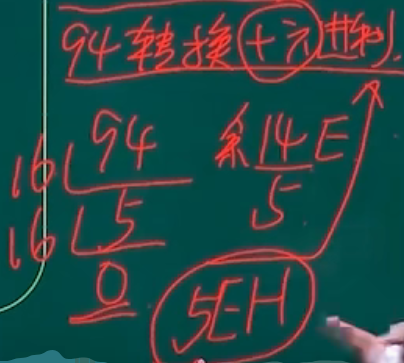 94转换十六进制
16 94 余14 E
16 5 5
0
5EH